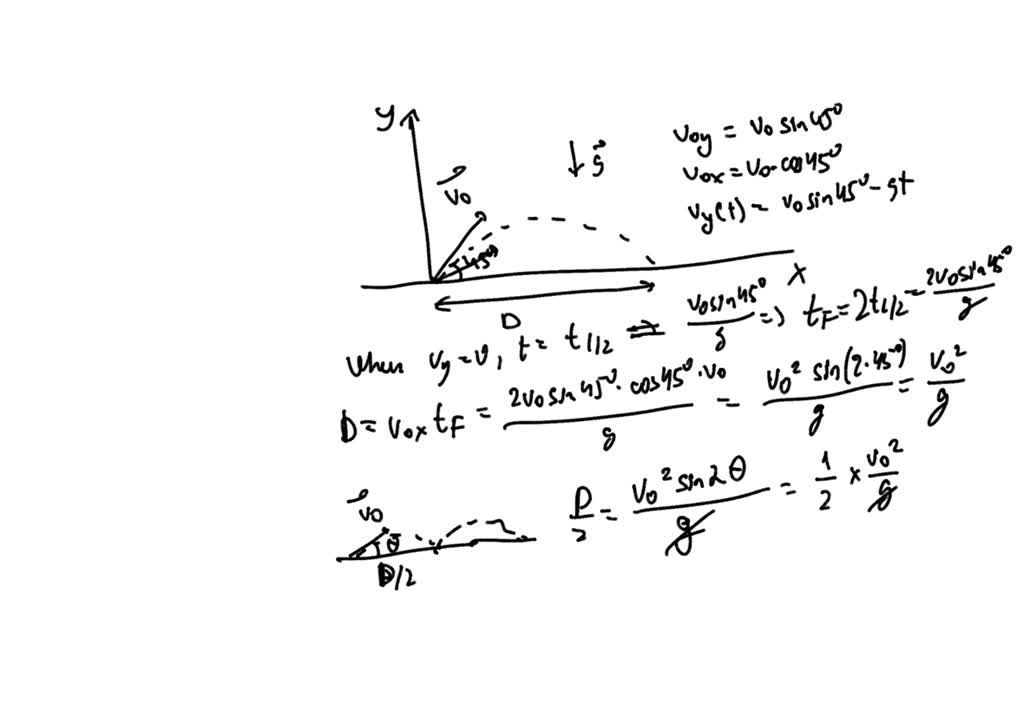 y
v₀y = v₀ sin 45°
↓ g⃗
v₀x = v₀·cos45°
v⃗₀
vy(t) = v₀ sin45° - gt
45°
x
D
When vy = 0, t = t1/2 ⇒ v₀sin45°/g ⇒ tF = 2t1/2 = 2v₀sin45°/g
D = v₀x tF = 2v₀ sin 45°·cos45°·v₀/g = v₀² sin(2·45°)/g = v₀²/g
v⃗₀
θ
D/2
D/2 = v₀² sin2θ/g = 1/2 × v₀²/g